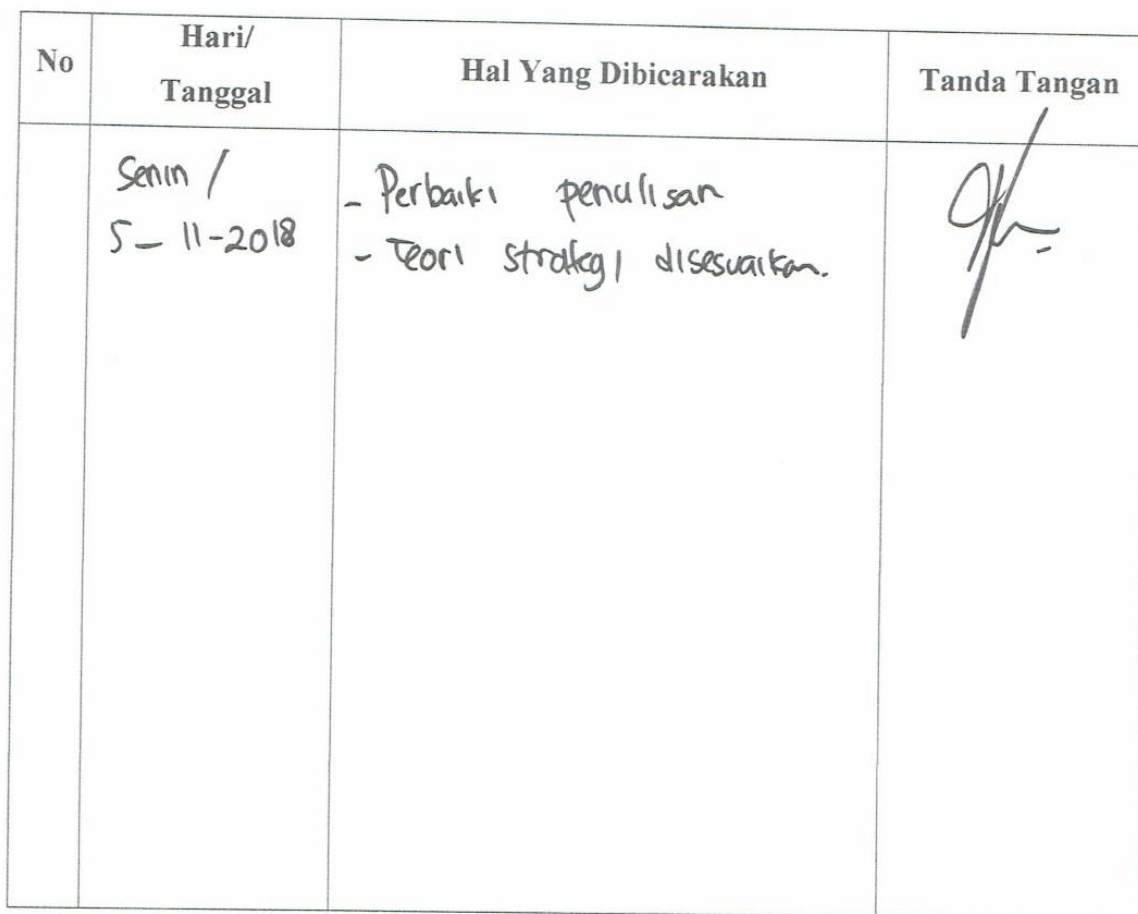 No
Hari/
Tanggal
Hal Yang Dibicarakan
Tanda Tangan
Senin /
5-11-2018
- Perbaiki penulisan
- Teori strategi disesuaikan.